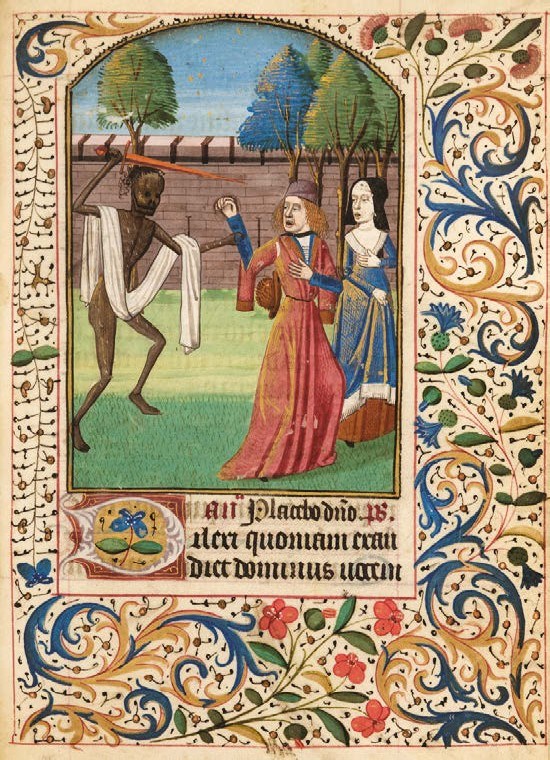 an̄ Placebo dn̄o. ps.
Dilexi quoniam exau
diet dominus uocem